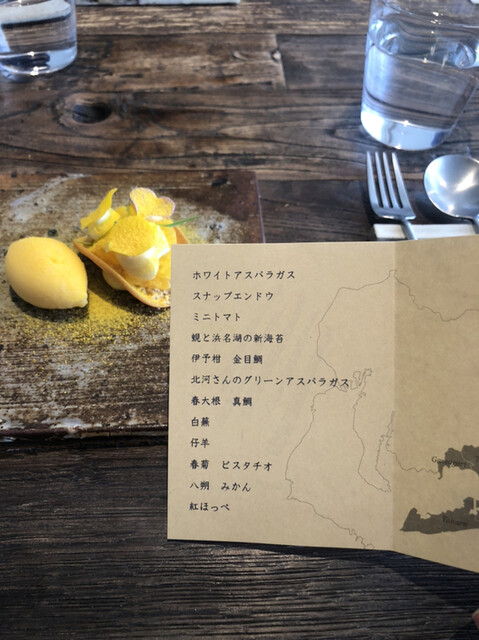 ホワイトアスパラガス
スナップエンドウ
ミニトマト
蜆と浜名湖の新海苔
伊予柑　金目鯛
北河さんのグリーンアスパラガス
春大根　真鯛
白蕪
仔羊
春菊　ピスタチオ
八朔　みかん
紅ほっぺ